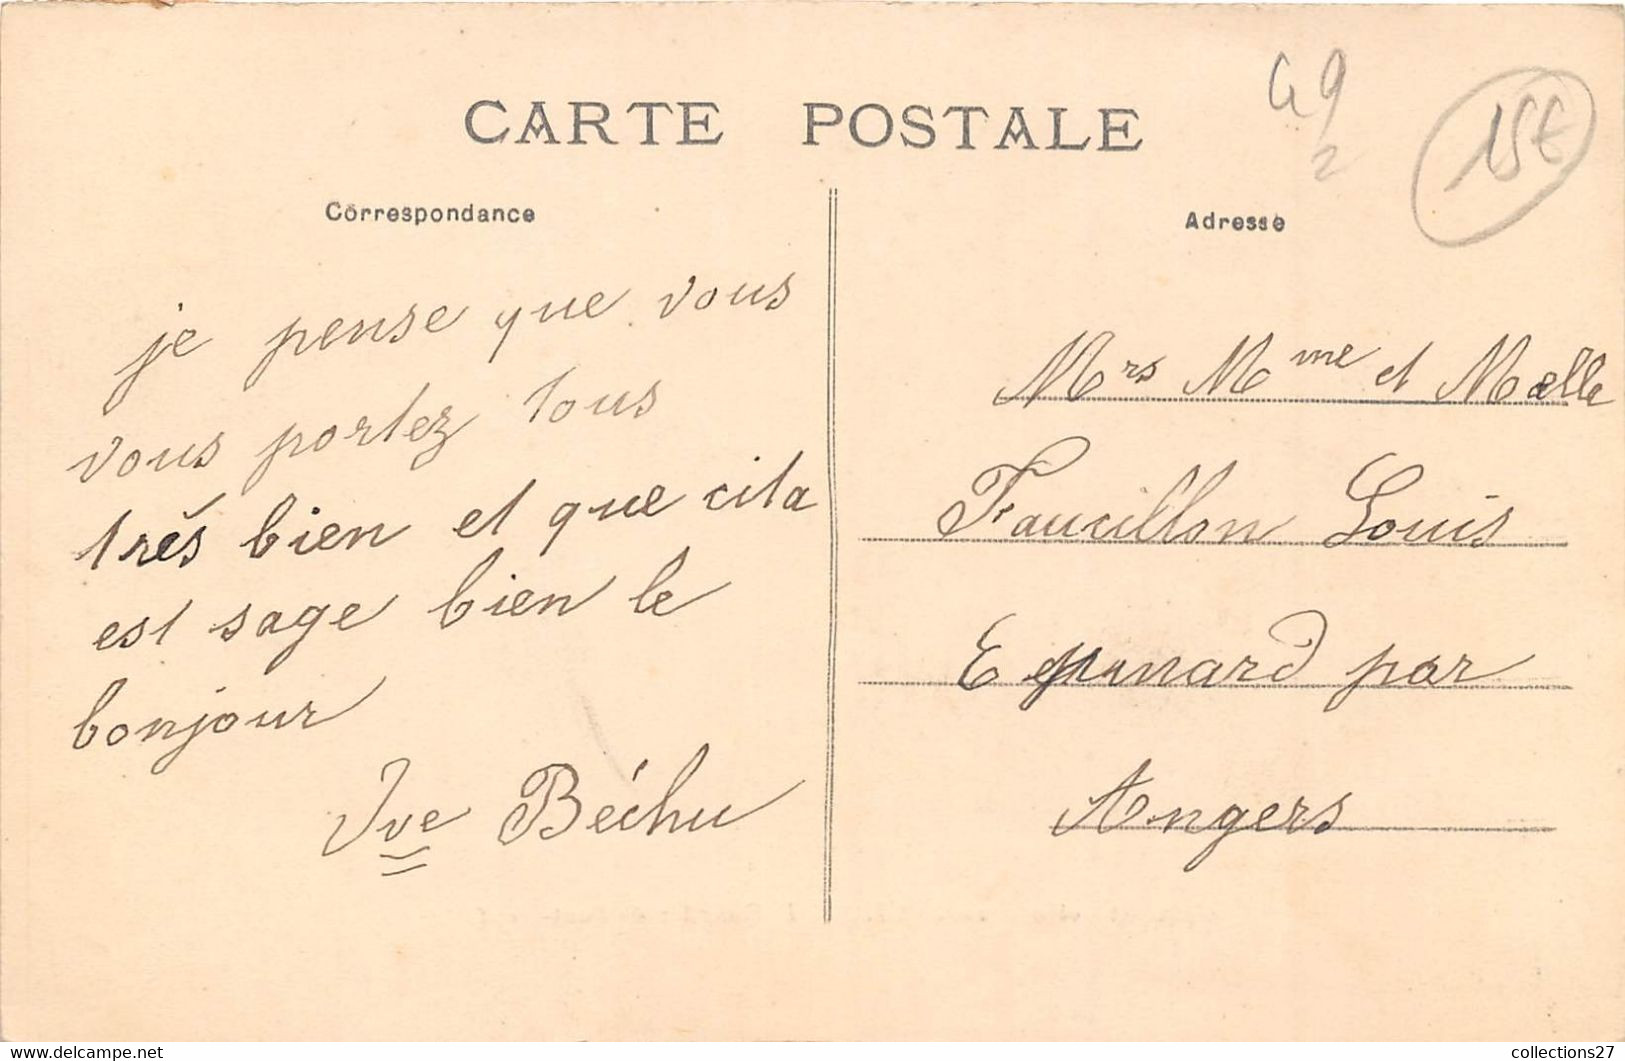 CARTE POSTALE
49
2
15€
Correspondance
Adresse
je pense que vous
vous portez tous
très bien et que cita
est sage bien le
bonjour
Vve Béchu
Mrs Mme et Melle
Faucillon Louis
Epinard par
Angers
collections27